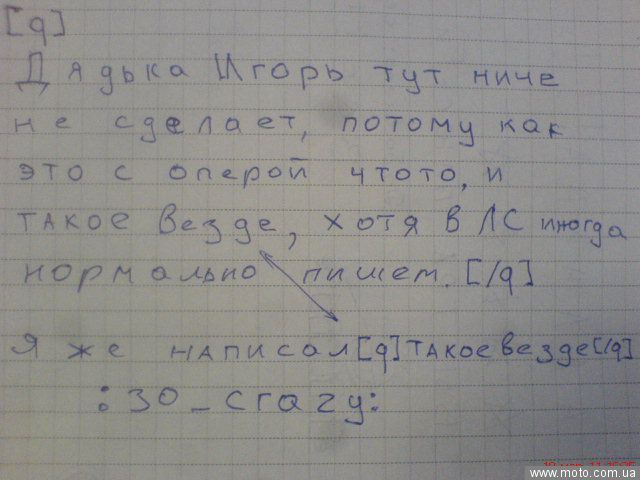 [q]
Дядька Игорь тут ниче
не сделает, потому как
это с оперой чтото, и
такое везде, хотя в ЛС иногда
нормально пишем. [/q]
Я же написал [q] такое везде [/q]
:30_crazy:
www.moto.com.ua